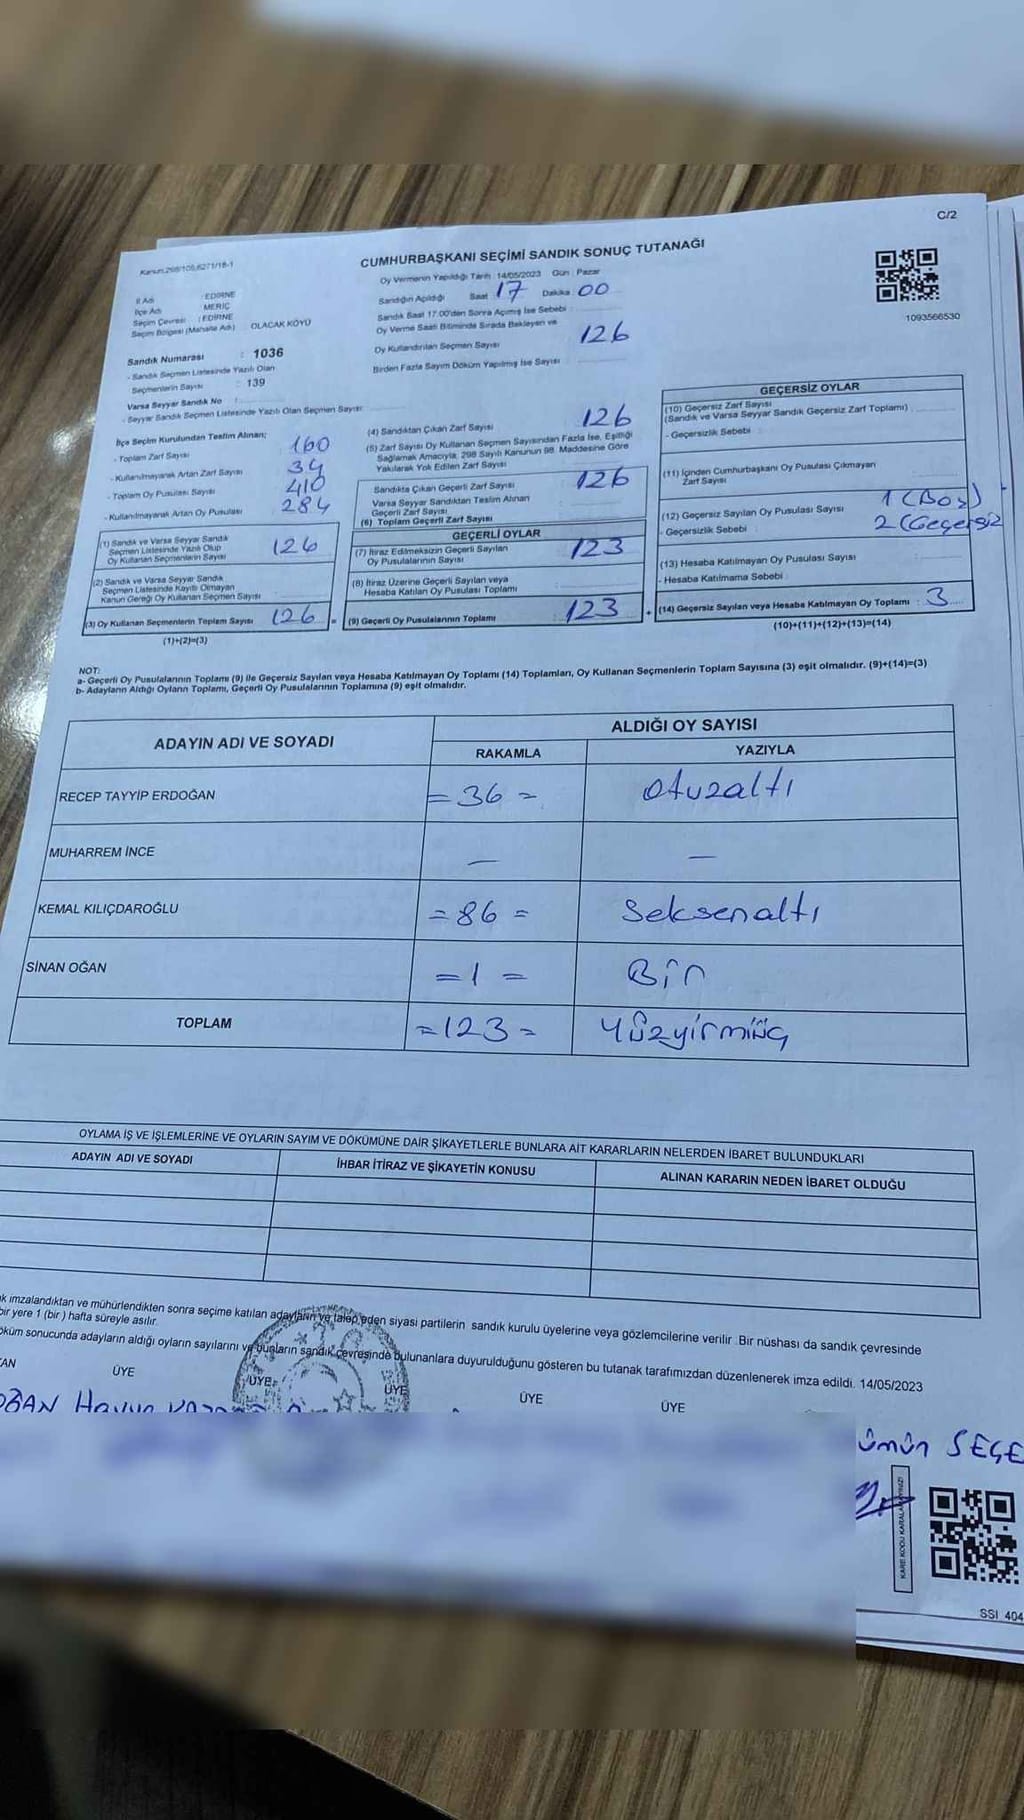 C/2
Kanun.298/105,6271/18-1
CUMHURBAŞKANI SEÇİMİ SANDIK SONUÇ TUTANAĞI
Oy Vermenin Yapıldığı Tarih : 14/05/2023 Gün : Pazar
İl Adı : EDİRNE
İlçe Adı : MERİÇ
Seçim Çevresi : EDİRNE
Seçim Bölgesi (Mahalle Adı) OLACAK KÖYÜ
Sandık Numarası : 1036
- Sandık Seçmen Listesinde Yazılı Olan
Seçmenlerin Sayısı : 139
Varsa Seyyar Sandık No :
- Seyyar Sandık Seçmen Listesinde Yazılı Olan Seçmen Sayısı
Sandığın Açıldığı Saat 17 Dakika 00
Sandık Saat 17.00'den Sonra Açımış İse Sebebi
Oy Verme Saati Bitiminde Sırada Bekleyen ve
Oy Kullandırılan Seçmen Sayısı 126
Birden Fazla Sayım Döküm Yapılmış İse Sayısı
1093566530
İlçe Seçim Kurulundan Teslim Alınan;
- Toplam Zarf Sayısı 160
- Kullanılmayarak Artan Zarf Sayısı 34
- Toplam Oy Pusulası Sayısı 410
- Kullanılmayarak Artan Oy Pusulası 284
(1) Sandık ve Varsa Seyyar Sandık
Seçmen Listesinde Yazılı Olup
Oy Kullanan Seçmenlerin Sayısı 126
(2) Sandık ve Varsa Seyyar Sandık
Seçmen Listesinde Kayıtlı Olmayan
Kanun Gereği Oy Kullanan Seçmen Sayısı
(3) Oy Kullanan Seçmenlerin Toplam Sayısı 126 =
(1)+(2)=(3)
(4) Sandıktan Çıkan Zarf Sayısı 126
(5) Zarf Sayısı Oy Kullanan Seçmen Sayısından Fazla İse, Eşitliği
Sağlamak Amacıyla, 298 Sayılı Kanunun 98. Maddesine Göre
Yakılarak Yok Edilen Zarf Sayısı
Sandıkta Çıkan Geçerli Zarf Sayısı 126
Varsa Seyyar Sandıktan Teslim Alınan
Geçerli Zarf Sayısı
(6) Toplam Geçerli Zarf Sayısı
GEÇERLİ OYLAR
(7) İtiraz Edilmeksizin Geçerli Sayılan
Oy Pusulalarının Sayısı 123
(8) İtiraz Üzerine Geçerli Sayılan veya
Hesaba Katılan Oy Pusulası Toplamı
(9) Geçerli Oy Pusulalarının Toplamı 123 +
GEÇERSİZ OYLAR
(10) Geçersiz Zarf Sayısı
(Sandık ve Varsa Seyyar Sandık Geçersiz Zarf Toplamı)
- Geçersizlik Sebebi
(11) İçinden Cumhurbaşkanı Oy Pusulası Çıkmayan
Zarf Sayısı
(12) Geçersiz Sayılan Oy Pusulası Sayısı 1 (Boş)
- Geçersizlik Sebebi 2 (Geçersiz
(13) Hesaba Katılmayan Oy Pusulası Sayısı
- Hesaba Katılmama Sebebi
(14) Geçersiz Sayılan veya Hesaba Katılmayan Oy Toplamı : 3
(10)+(11)+(12)+(13)=(14)
NOT:
a- Geçerli Oy Pusulalarının Toplamı (9) ile Geçersiz Sayılan veya Hesaba Katılmayan Oy Toplamı (14) Toplamları, Oy Kullanan Seçmenlerin Toplam Sayısına (3) eşit olmalıdır. (9)+(14)=(3)
b- Adayların Aldığı Oyların Toplamı, Geçerli Oy Pusulalarının Toplamına (9) eşit olmalıdır.
ADAYIN ADI VE SOYADI ALDIĞI OY SAYISI
RAKAMLA YAZIYLA
RECEP TAYYİP ERDOĞAN =36= Otuzaltı
MUHARREM İNCE — —
KEMAL KILIÇDAROĞLU =86= Seksenaltı
SİNAN OĞAN =1= Bir
TOPLAM =123= Yüzyirmiüç
OYLAMA İŞ VE İŞLEMLERİNE VE OYLARIN SAYIM VE DÖKÜMÜNE DAİR ŞİKAYETLERLE BUNLARA AİT KARARLARIN NELERDEN İBARET BULUNDUKLARI
ADAYIN ADI VE SOYADI İHBAR İTİRAZ VE ŞİKAYETİN KONUSU ALINAN KARARIN NEDEN İBARET OLDUĞU
k imzalandıktan ve mühürlendikten sonra seçime katılan adayların ve talep eden siyasi partilerin sandık kurulu üyelerine veya gözlemcilerine verilir. Bir nüshası da sandık çevresinde
bir yere 1 (bir) hafta süreyle asılır.
öküm sonucunda adayların aldığı oyların sayılarını ve bunların sandık çevresinde bulunanlara duyurulduğunu gösteren bu tutanak tarafımızdan düzenlenerek imza edildi. 14/05/2023
AN ÜYE ÜYE ÜYE ÜYE ÜYE
ümün SEÇE
SSI 404